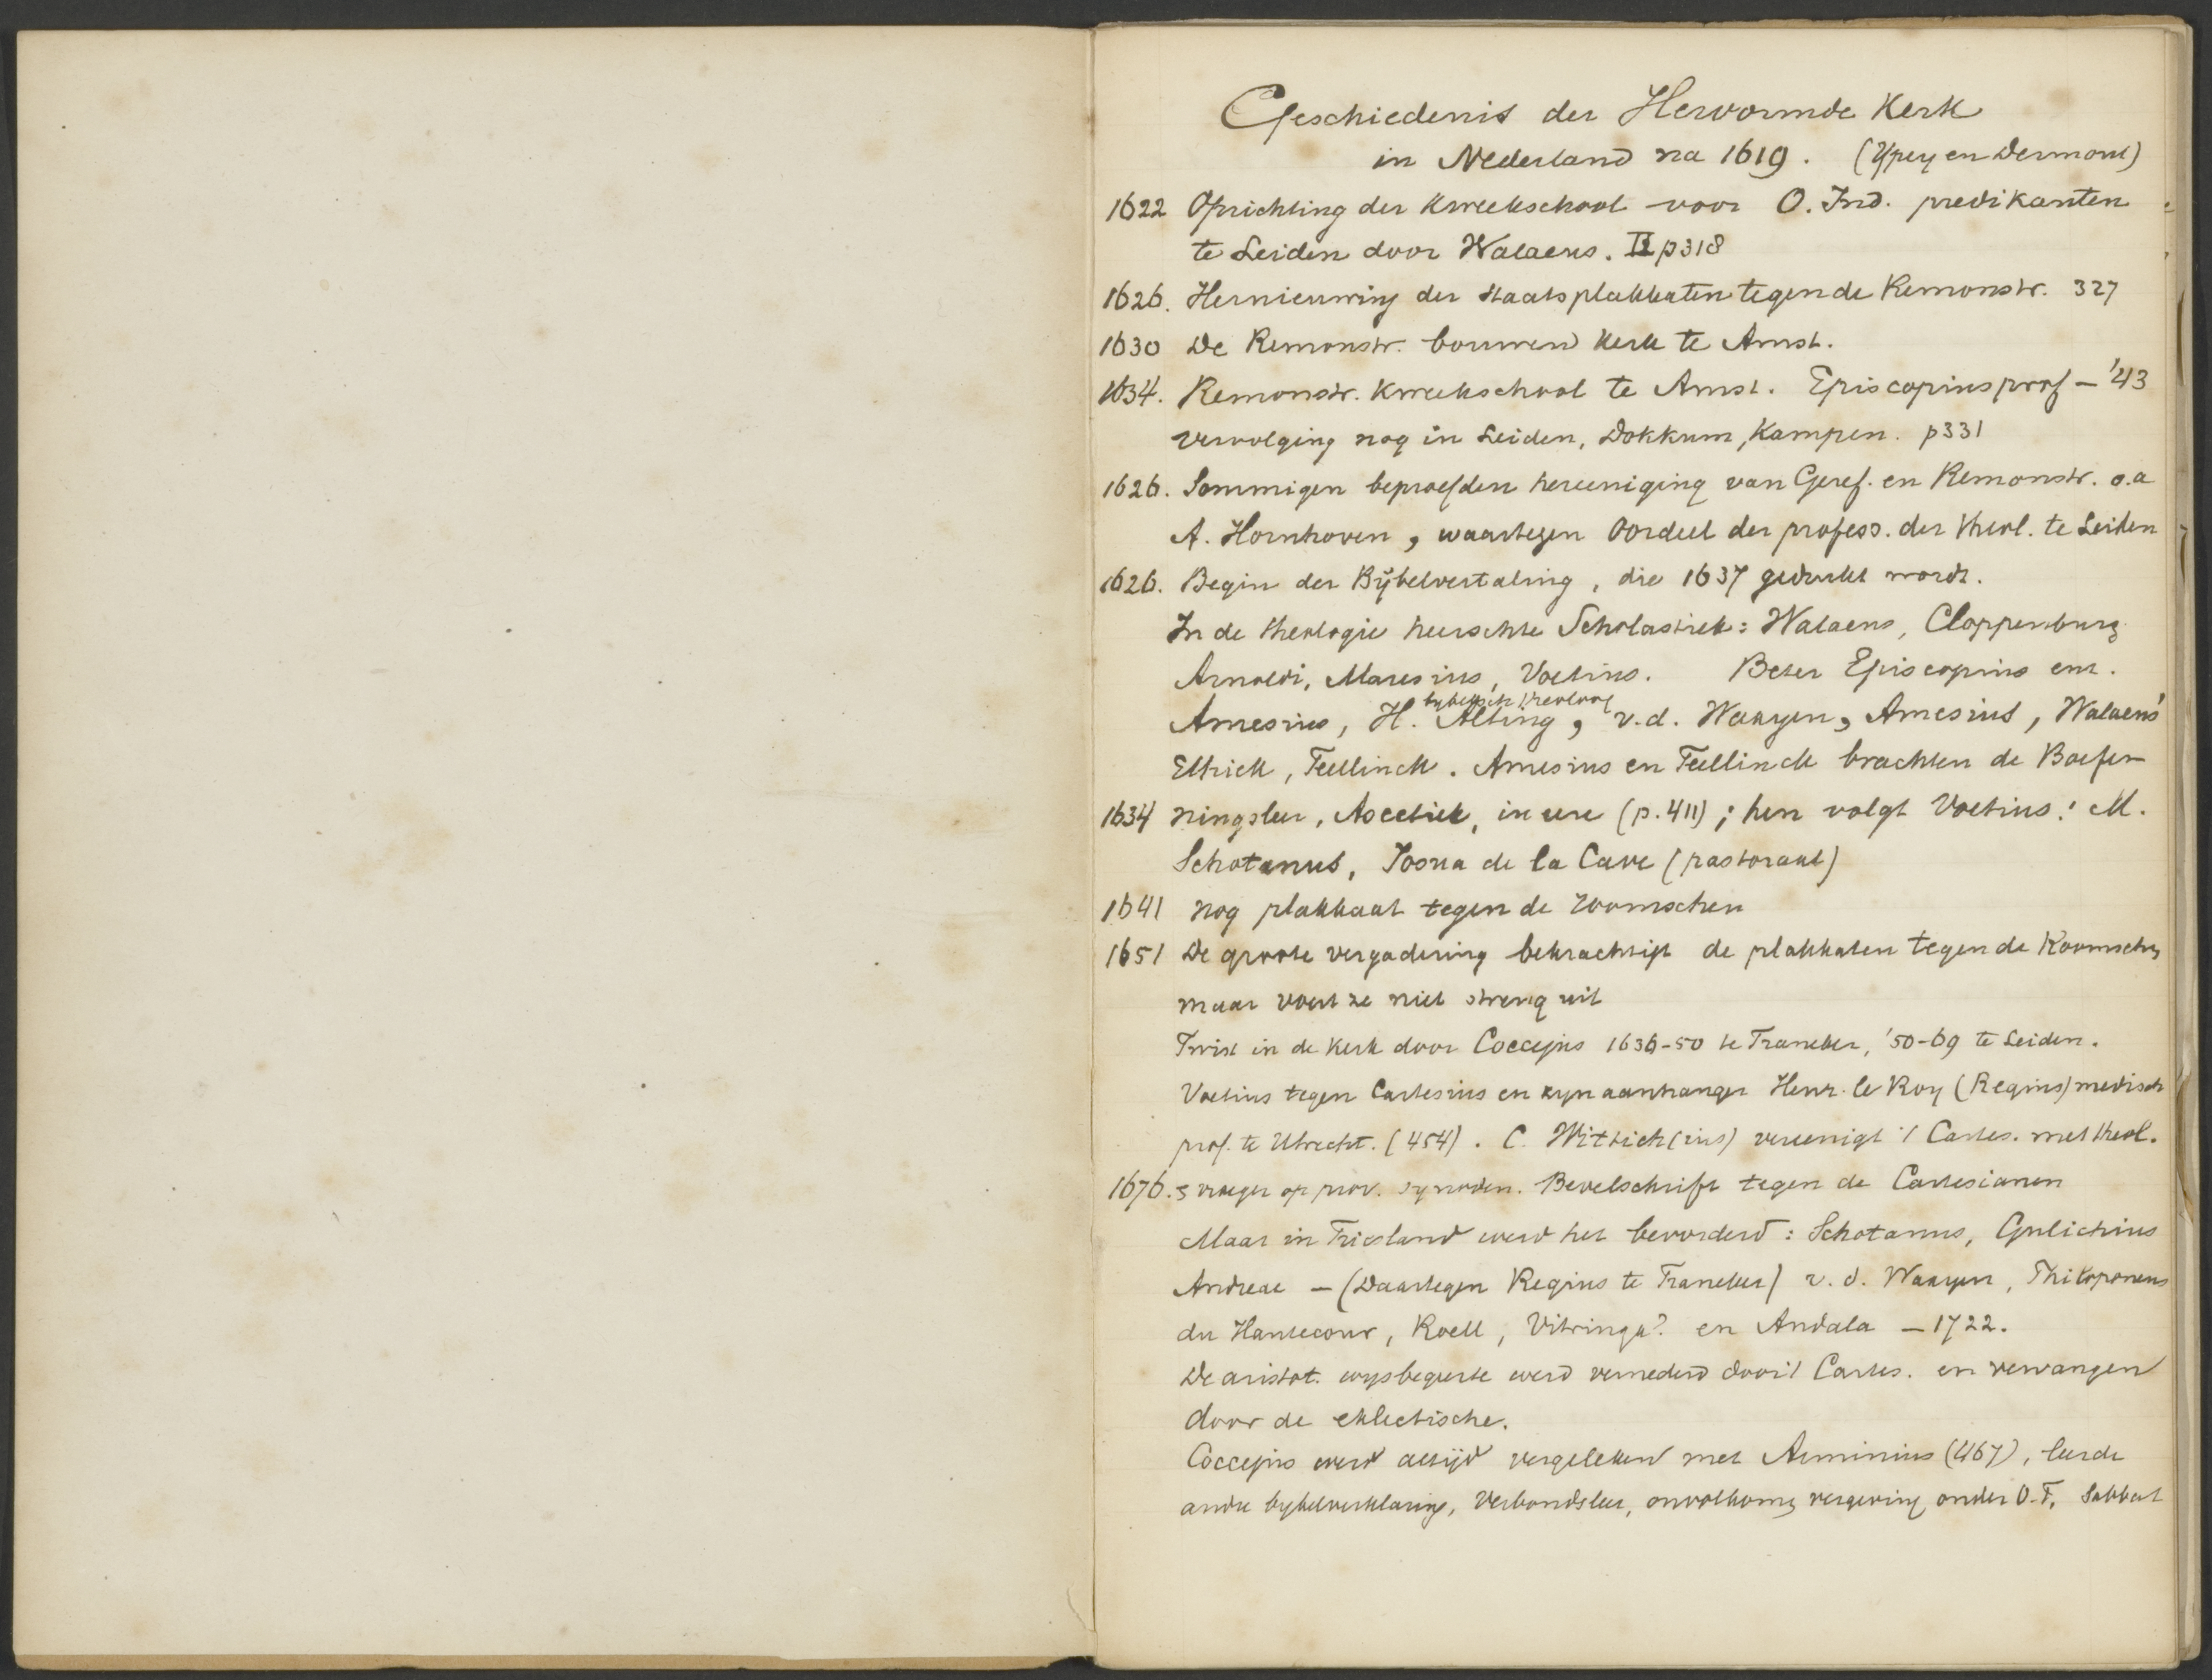 Geschiedenis der Hervormde Kerk
in Nederland na 1619. (Ypey en Dermout)
1622 Oprichting der Kweekschool voor O. Ind. predikanten
te Leiden door Walaeus. II p318
1626. Hernieuwing der Staatsplakkaten tegen de Remonstr. 327
1630 De Remonstr. bouwen Kerk te Amst.
1634. Remonstr. Kweekschool te Amst. Episcopius prof – '43
Vervolging nog in Leiden, Dokkum, Kampen. p331
1626. Sommigen beproefden hereeniging van Geref. en Remonstr. o.a
A. Hornhoven, waartegen Oordeel der profess. der theol. te Leiden
1626. Begin der Bijbelvertaling, die 1637 gedrukt wordt.
In de theologie heerschte Scholastiek: Walaeus, Cloppenburg
Arnoldi, Maresius, Voetius. Beter Episcopius enz.
bybelsch theoloog
Amesius, H. Alting, v.d. Waayen, Amesius, Walaeus
Eltrick, Teellinck. Amesius en Teellinck brachten de Boefen
1634 ningsleer, Ascetiek, in eere (p. 411); hen volgt Voetius! M.
Schotanus, Josua de la Cave (pastoraal)
1641 nog plakkaat tegen de roomschen
1651 De groote vergadering bekrachtigt de plakkaten tegen de Roomschen
maar voert ze niet streng uit
Twist in de Kerk door Coccejus 1636-50 te Franeker, '50-69 te Leiden.
Voetius tegen Cartesius en zyn aanhanger Henr. le Roy (Regius) medisch
prof. te Utrecht. (454). C. Wittich(ius) vereenigt 't Cartes. met theol.
1676. & vroeger op prov. synoden. Bevelschrift tegen de Cartesianen
Maar in Friesland werd het bevorderd: Schotanus, Gulichius
Andreae – (Daartegen Regius te Franeker) v.d. Waayen, Philoponeus
du Hautecour, Roell, Vitringa? en Andala – 1722.
De aristot. wysbegeerte werd vernederd door 't Cartes. en vervangen
door de eklectische.
Coccejus werd altijd vergeleken met Arminius (467), leerde
andre bybelverklaring, Verbondsleer, onvolkomen vergeving onder O.T, Sabbat